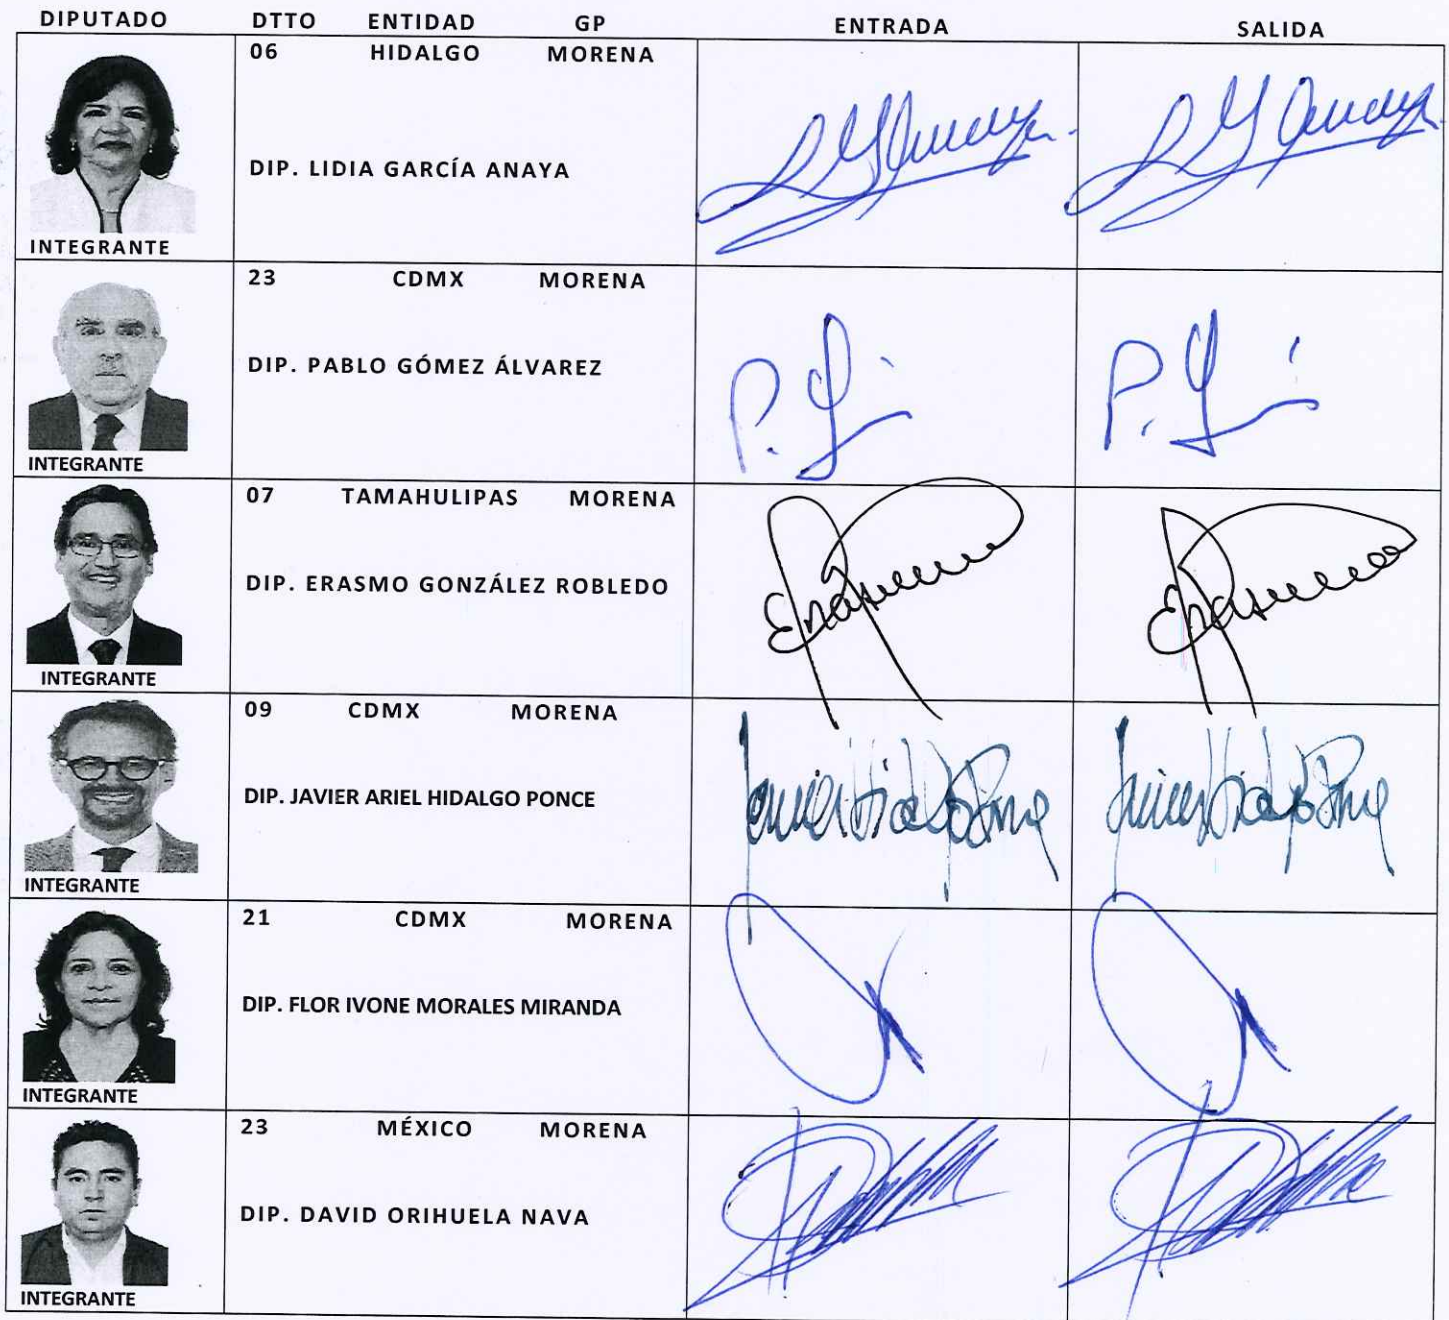 DIPUTADO DTTO ENTIDAD GP ENTRADA SALIDA
06 HIDALGO MORENA
DIP. LIDIA GARCÍA ANAYA
INTEGRANTE
23 CDMX MORENA
DIP. PABLO GÓMEZ ÁLVAREZ
INTEGRANTE
07 TAMAHULIPAS MORENA
DIP. ERASMO GONZÁLEZ ROBLEDO
INTEGRANTE
09 CDMX MORENA
DIP. JAVIER ARIEL HIDALGO PONCE
INTEGRANTE
21 CDMX MORENA
DIP. FLOR IVONE MORALES MIRANDA
INTEGRANTE
23 MÉXICO MORENA
DIP. DAVID ORIHUELA NAVA
INTEGRANTE